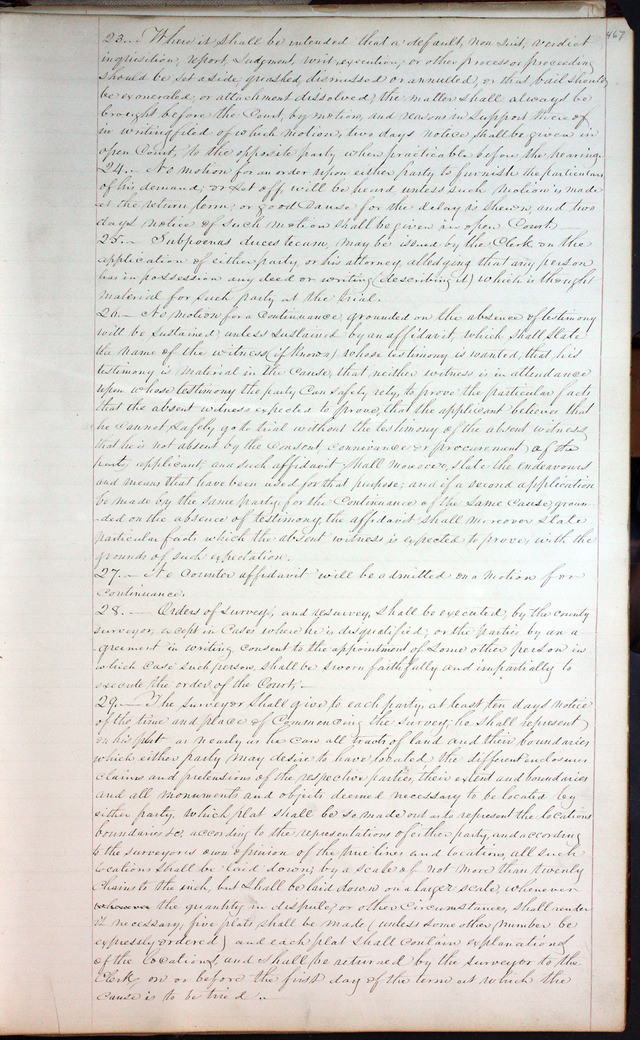 467
23.— When it shall be intended that a default, non suit, verdict
inquisition, report, Judgment, writ, execution, or other process or proceeding
should be set aside, quashed, dismissed or annulled, or that bail should
be exonerated, or attachment dissolved, the matter shall always be
brought before the Court, by motion, and reasons in support thereof
in writing filed of which motion, two days notice shall be given in
open Court, to the opposite party when practicable before the hearing.
24.— No motion for an order upon either party to furnish the particulars
of his demand, or set off, will be heard unless such motion is made
at the return term; or good Cause for the delay is shewn, and two
days notice of such motion shall be given in open Court.
25.— Subpoenas duces tecum, may be issued by the Clerk on the
application of either party, or his attorney, alledging that any person
has in possession any deed or writing (describing it) which is thought
material for such party at the trial.
26.— No motion for a Continuance, grounded on the absence of testimony
will be sustained, unless sustained by an affidavit, which shall state
the name of the witness (if known) whose testimony is wanted, that his
testimony is material in the Cause, that neither witness is in attendance
upon whose testimony the party can safely rely, to prove the particular facts
that the absent witness expected to prove, that the applicant believes that
he cannot safely go to trial without the testimony of the absent witness,
that he is not absent by the consent, connivance or procurement of the
party applicant, and such affidavit shall moreover, state the endeavours
and means that have been used for that purpose; and if a second application
be made by the same party, for the Continuance of the same Cause, groun-
-ded on the absence of testimony, the affidavit shall moreover state
particular facts which the absent witness is expected to prove, with the
grounds of such expectation.
27.— No Counter affidavit will be admitted on a motion for
continuance.
28.— Orders of survey, and resurvey, shall be executed, by the county
surveyor, except in Cases where he is disqualified; or the parties by an a-
-greement in writing, consent to the appointment of some other person in
which case such person, shall be sworn faithfully and impartially to
execute the order of the Court.—
29.— The surveyor shall give to each party, at least ten days notice
of the time and place of Commencing the survey; he shall represent
on his plat as nearly as he can all tracts of land and their boundaries
which either party may desire to have located the different enclosures
claims and pretensions of the respective parties, their extent and boundaries
and all monuments and objects deemed necessary to be located by
either party, which plat shall be so made out as to represent the locations
boundaries &c according to the representations of either party, and according
to the surveyor's own opinion of the true lines and locations, all such
locations shall be laid down, by a scale of not more than twenty
Chains to the inch, but shall be laid down on a larger scale, whenever
the quantity in dispute, or other Circumstances, shall render
it necessary, five plats shall be made (unless some other number be
expressly ordered) and each plat shall contain explanations
of the locations, and shall be returned by the surveyor to the
Clerk, on or before the first day of the term at which the
cause is to be tried.—